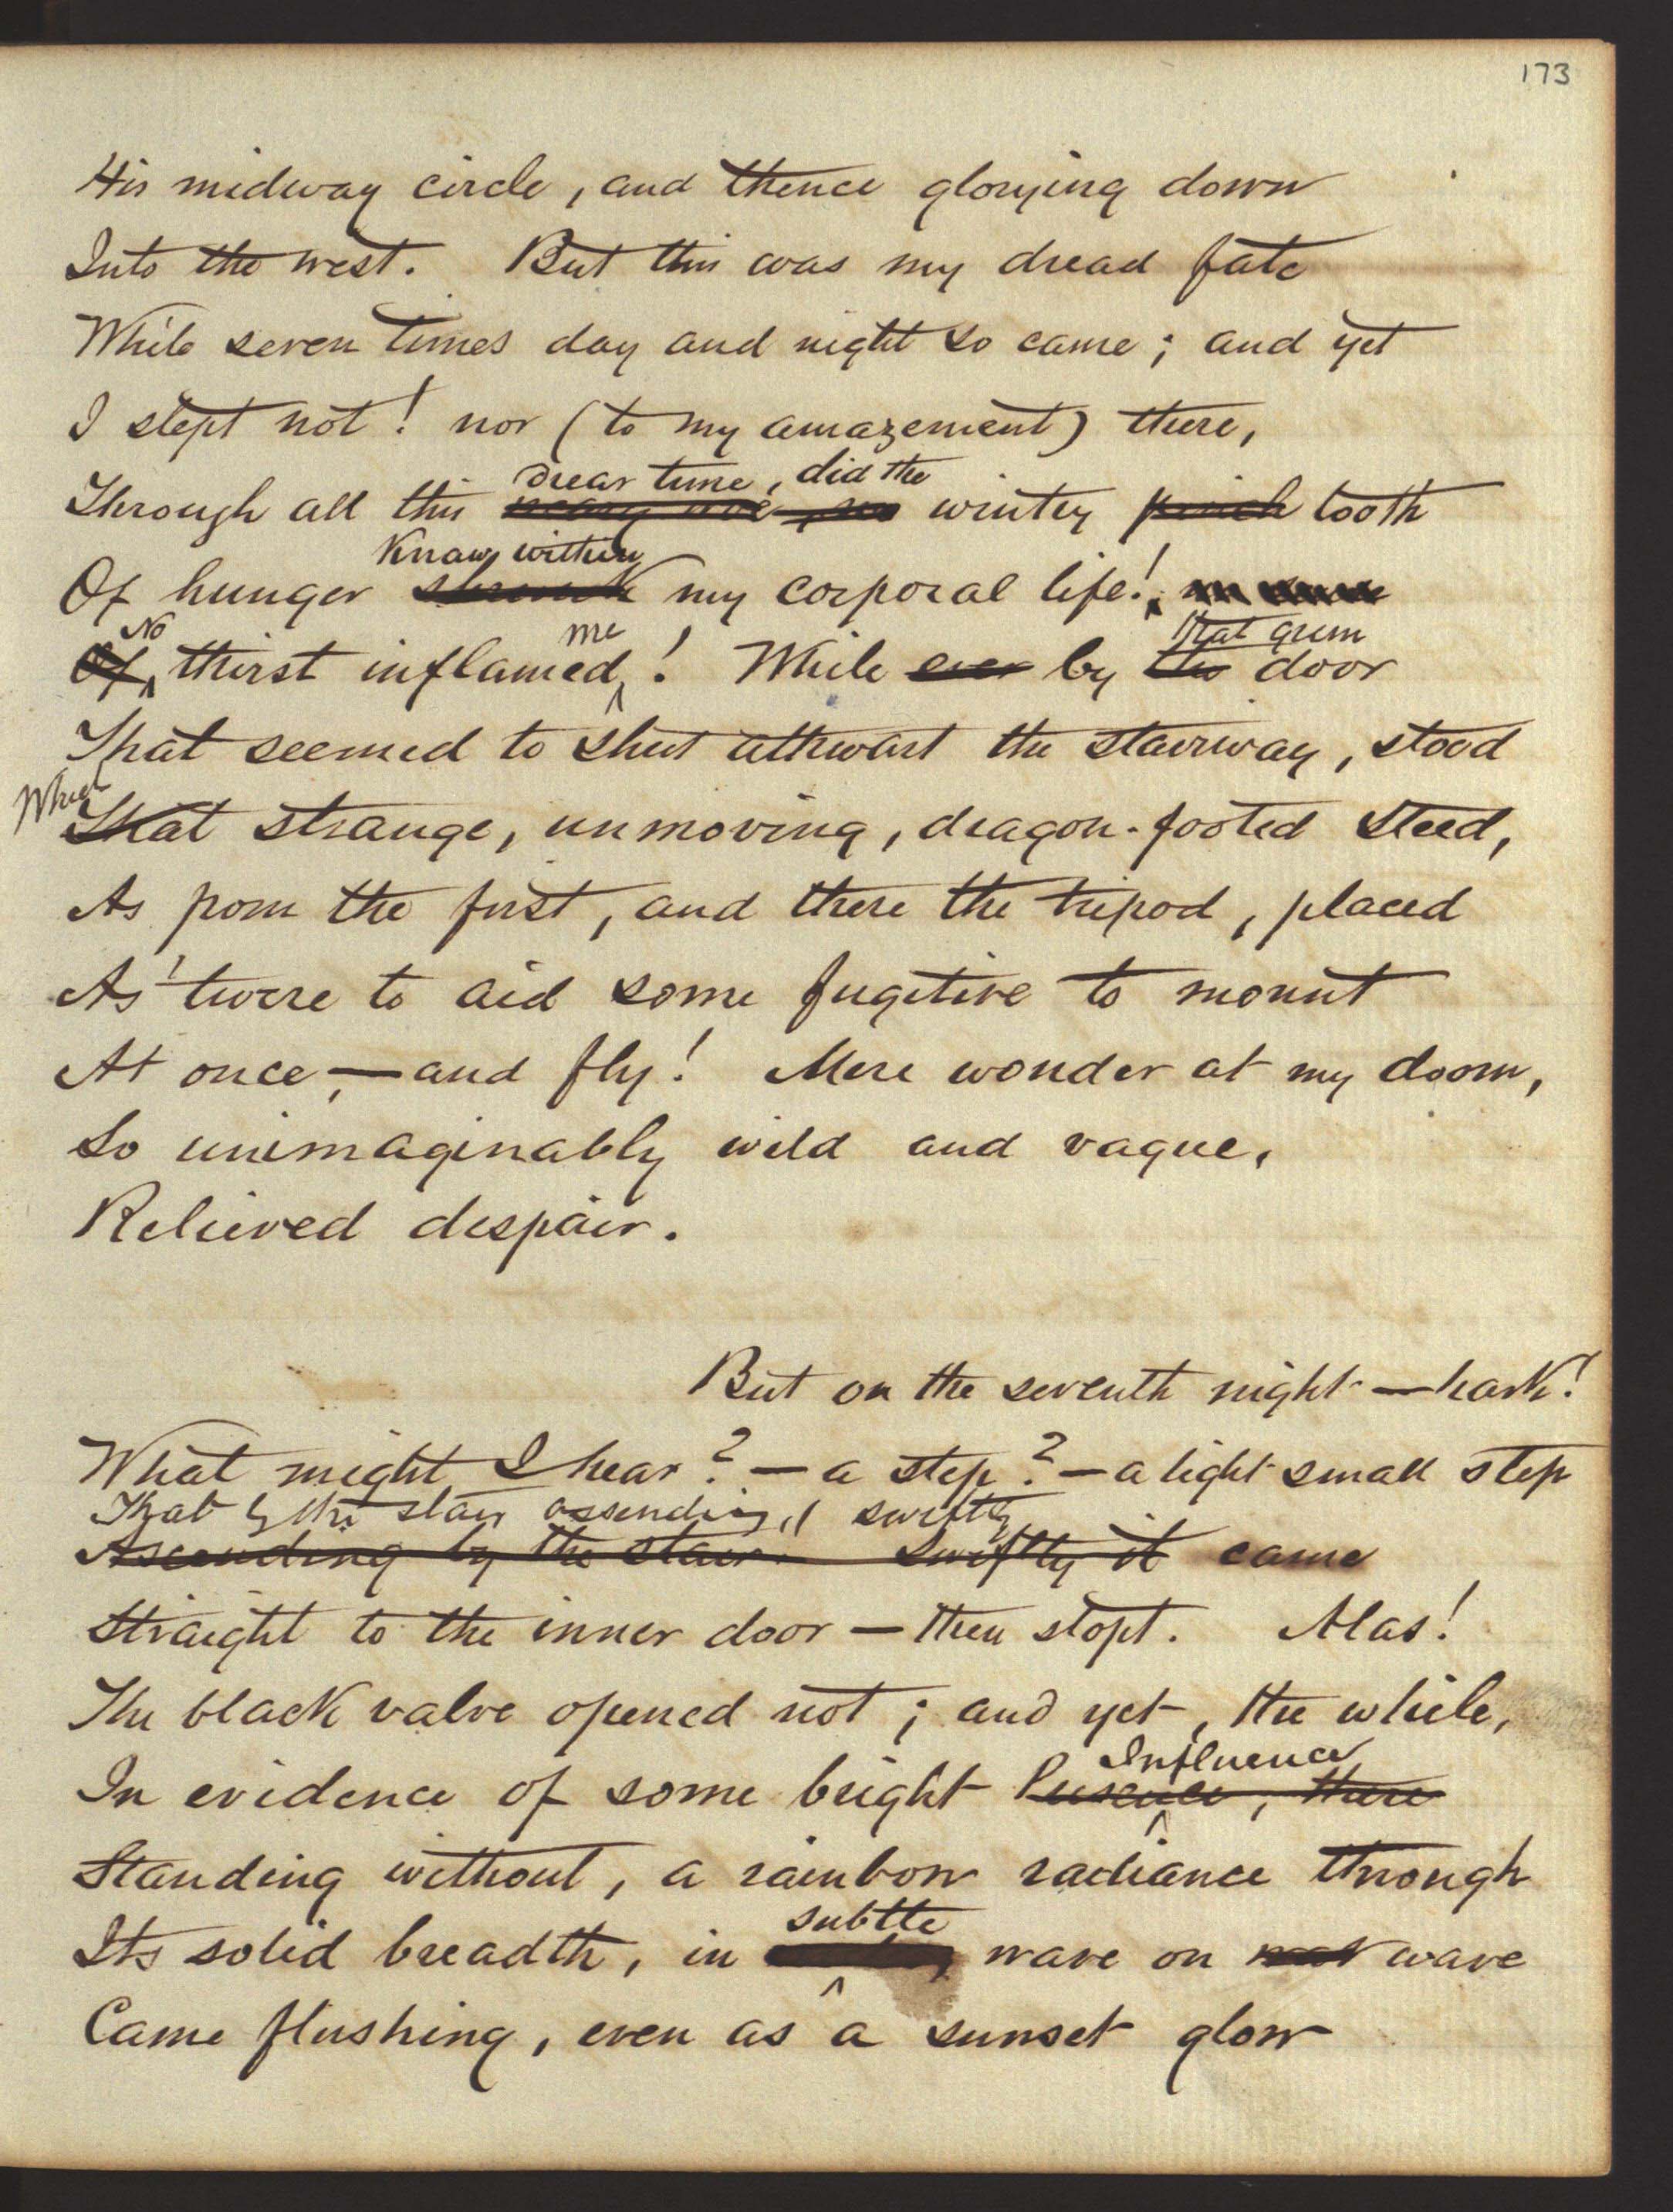 173
His midway circle, and thence glorying down
Into the west. But this was my dread fate
While seven times day and night so came; and yet
I slept not! nor (to my amazement) there,
drear time, did the
Through all this weary woe, no wintry pinch tooth
Knaw within
Of hunger my corporal life!
No me that grim
Of thirst inflamed! While ever by the door
That seemed to shut athwart the stairway, stood
Which
That strange, unmoving, dragon-footed Steed,
As from the first, and there the tripod, placed
As 'twere to aid some fugitive to mount
At once,—and fly! Mere wonder at my doom,
So unimaginably wild and vague,
Relieved despair.
But on the seventh night—hark!
What might I hear?—a step?—a light small step
That by the stair ascending, swiftly
Ascending by the stair. Swiftly it came
Straight to the inner door—then stopt. Alas!
The black valve opened not; and yet, the while,
Influence
In evidence of some bright Presence, there
Standing without, a rainbow radiance through
subtle
Its solid breadth, in wave on wave
Came flushing, even as a sunset glow